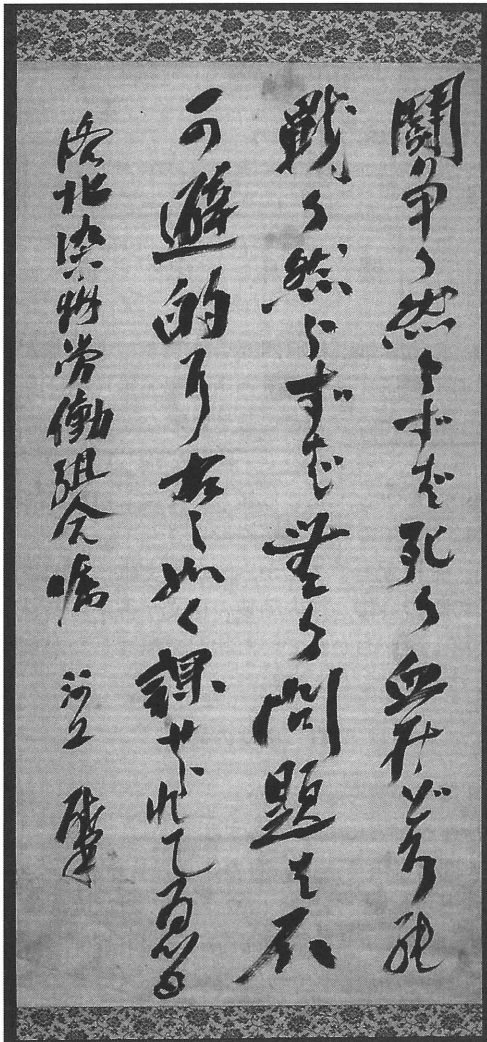 闘争か然らずば死か血みどろの
戦か然らずば無か問題は不
可避的に右の如く課せられてゐる
洛北染料労働組合嘱 河上 肇